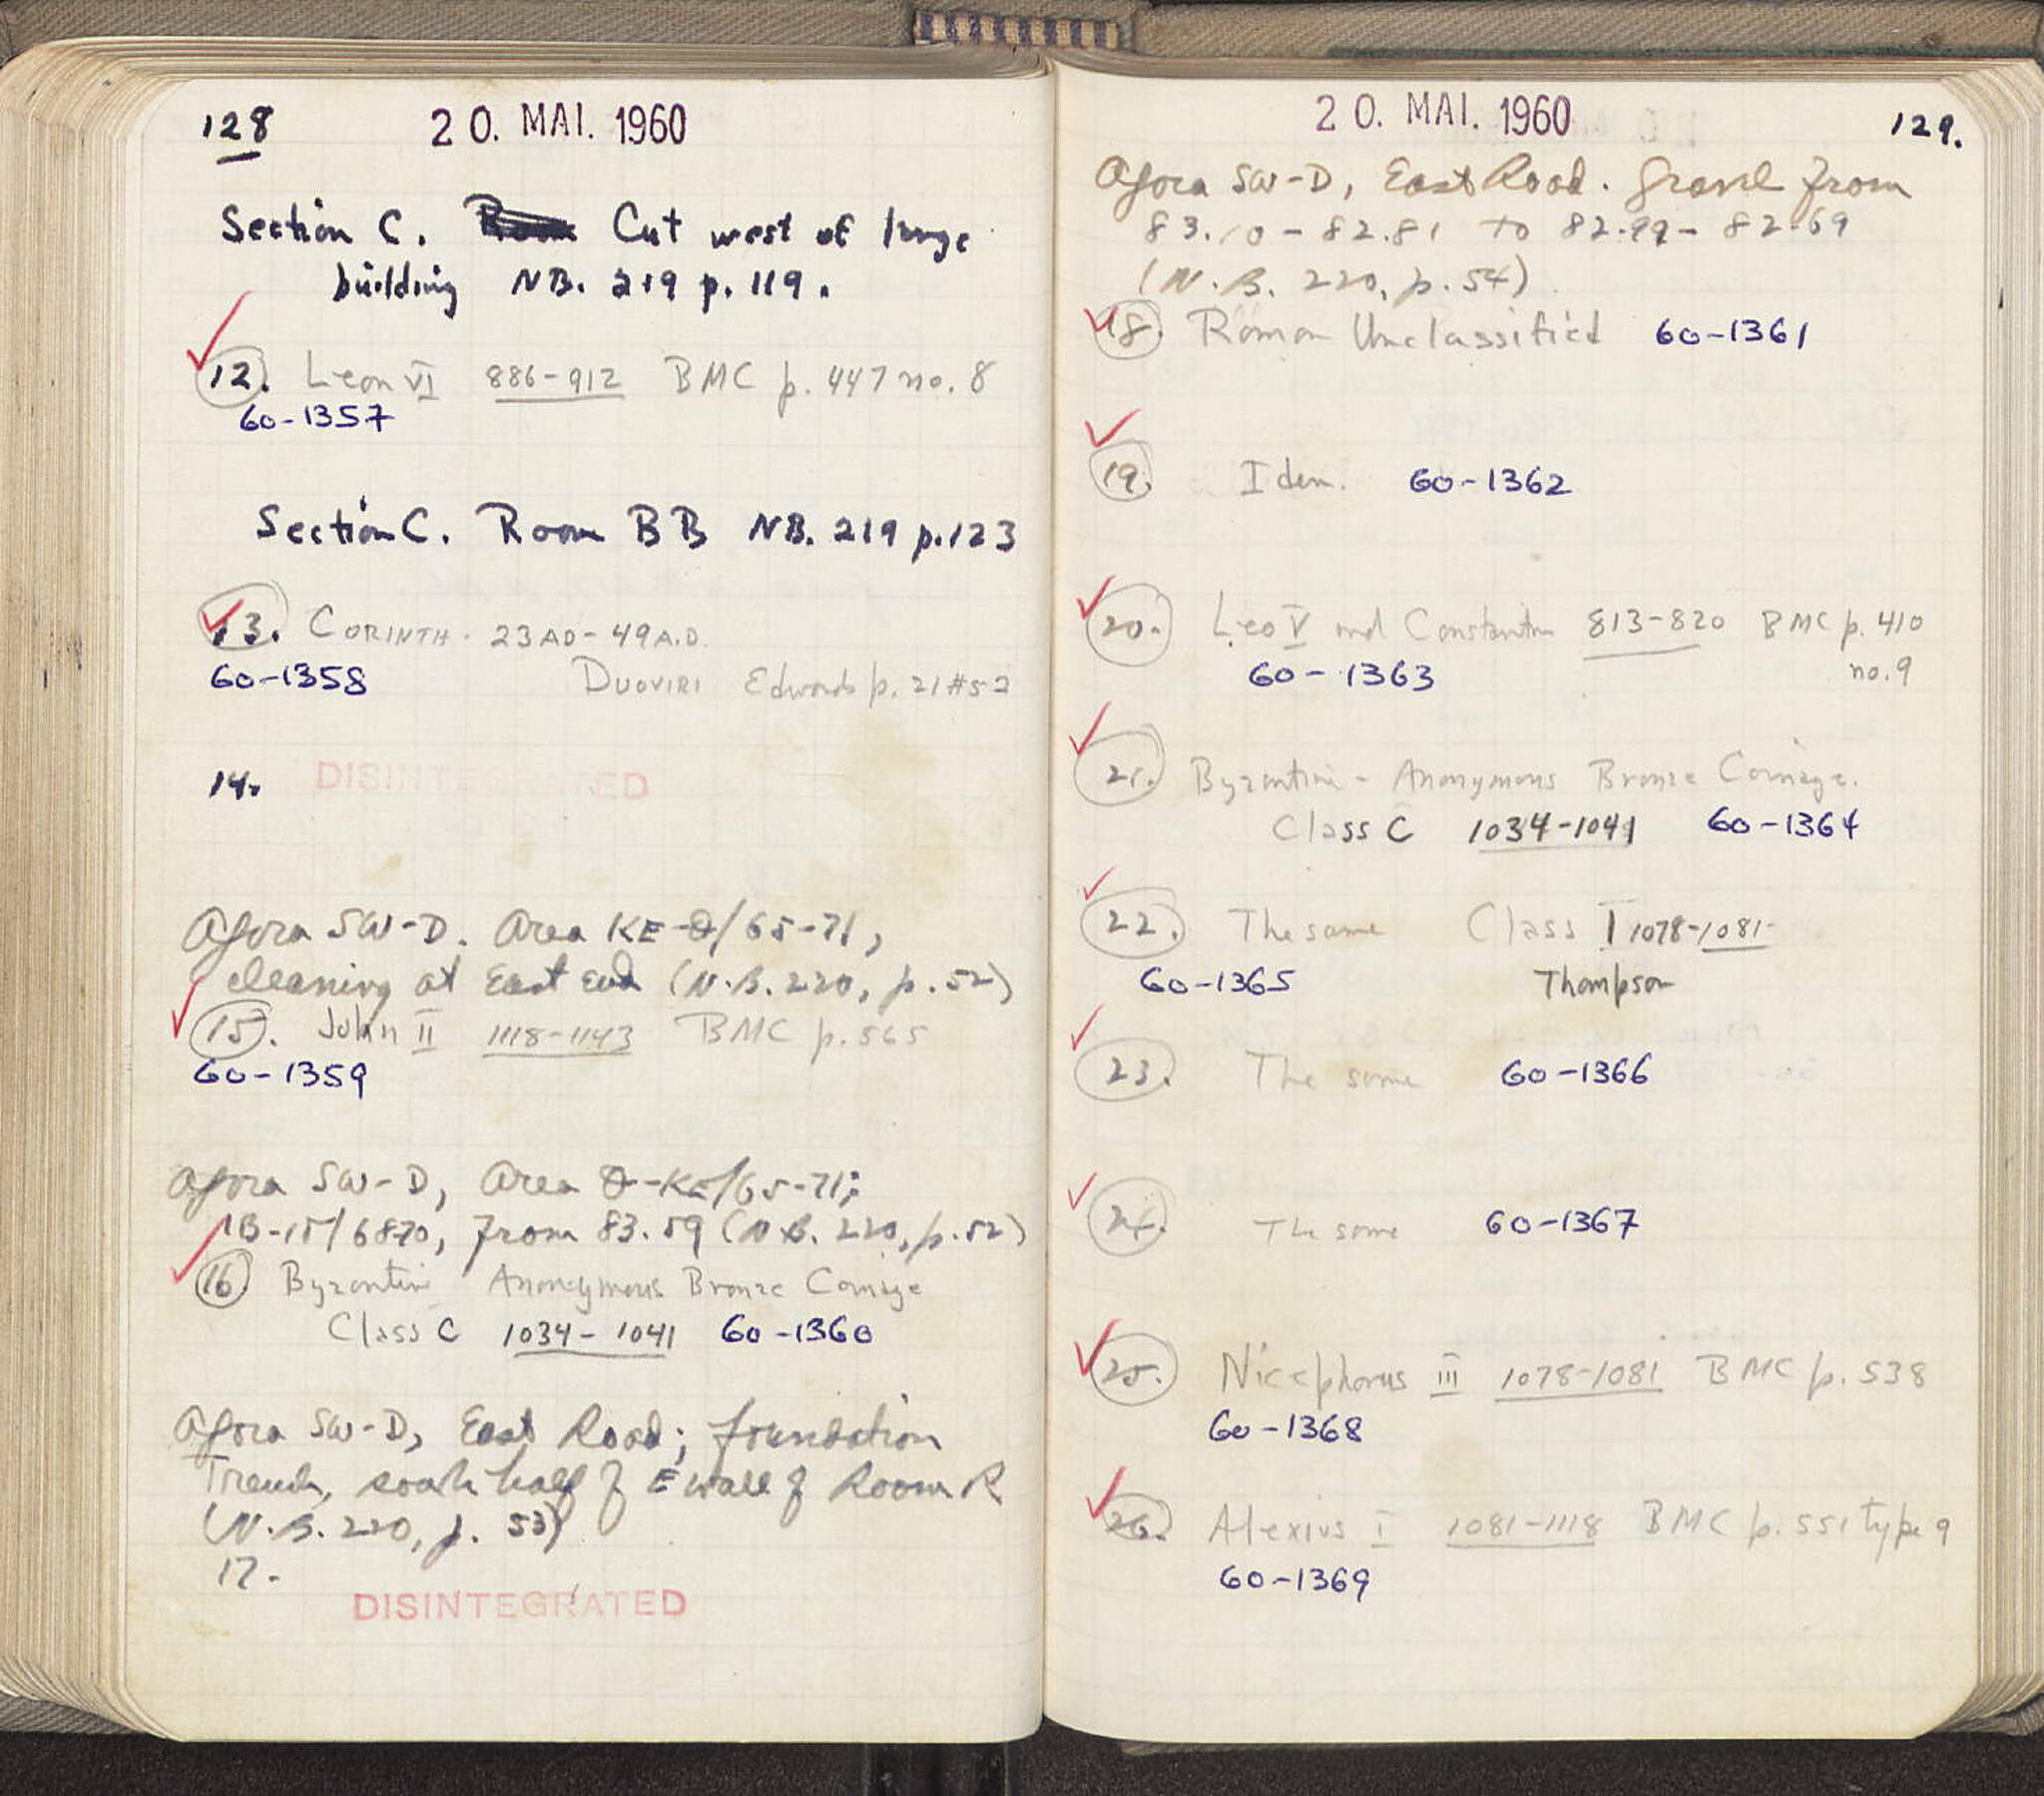 128
20. MAI. 1960
Section C. Cut west of large
building NB. 219 p. 119.
12. Leon VI 886-912 BMC p. 447 no. 8
60-1357
Section C. Room BB NB. 219 p. 123
13. CORINTH. 23 AD - 49 A.D.
60-1358 DUOVIRI Edwards p. 21 #52
14. DISINTEGRATED
Agora SW-D. Area KE-Θ/65-71,
cleaning at East end (N.B. 220, p. 52)
15. John II 1118-1143 BMC p. 565
60-1359
Agora SW-D, Area Θ-KE/65-71;
IB-IΓ/68-70, from 83.59 (N.B. 220, p. 52)
16. Byzantine Anonymous Bronze Coinage
Class C 1034-1041 60-1360
Agora SW-D, East Road; foundation
Trench, south half of E wall of Room R
(N.B. 220, p. 53)
17.
DISINTEGRATED
20. MAI. 1960
129.
Agora SW-D, East Road. Gravel from
83.10 - 82.81 to 82.99 - 82.69
(N.B. 220, p. 54)
18. Roman Unclassified 60-1361
19. Idem. 60-1362
20. Leo V and Constantin 813-820 BMC p. 410
60-1363 no. 9
21. Byzantine - Anonymous Bronze Coinage.
Class C 1034-1041 60-1364
22. The same Class I 1078-1081-
60-1365 Thompson
23. The same 60-1366
24. The same 60-1367
25. Nicephorus III 1078-1081 BMC p. 538
60-1368
26. Alexius I 1081-1118 BMC p. 551 type 9
60-1369